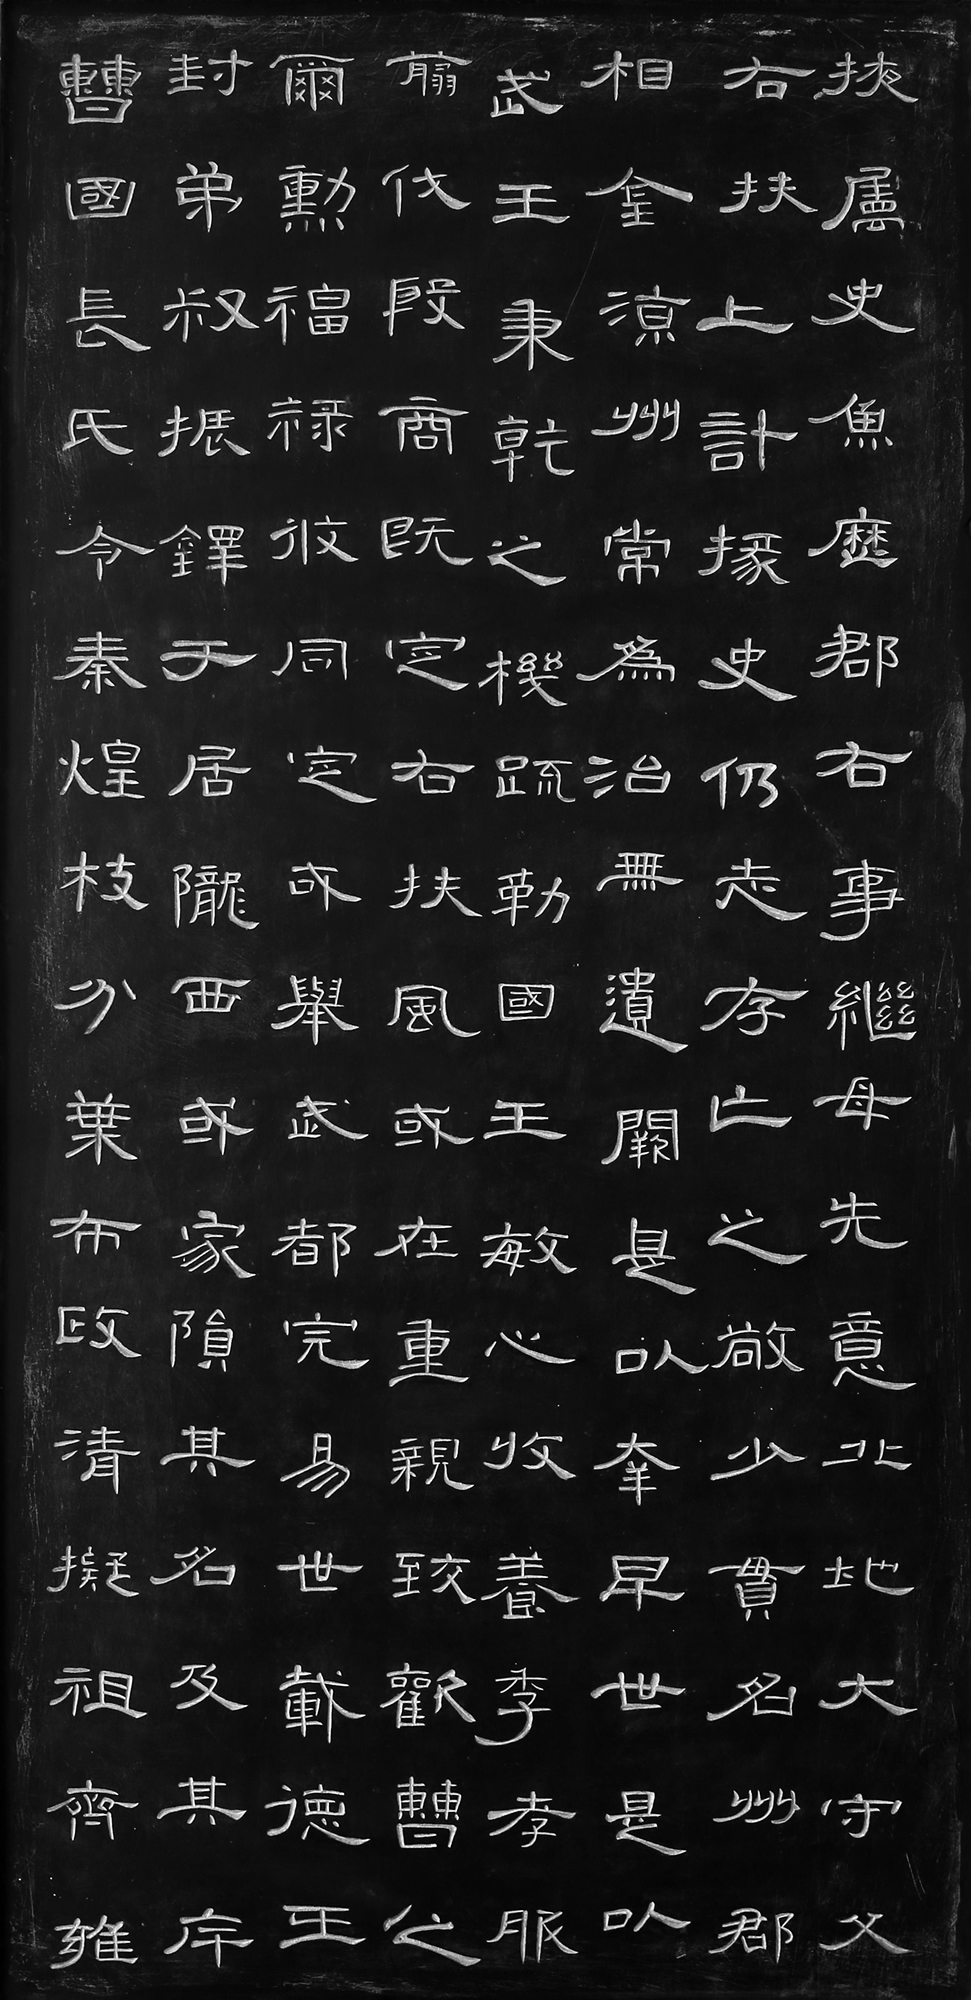 挾盧史魚歷郡右事繼母先意北地大守父
右扶上計掾史仍志存亡之敬少貫名州郡
相金涼州常為治無遺闕是以幸早世是以
武王秉乾之機疏勒國王敏心收養季孝服
翦伐殷商既定右扶風或在重親致歡曹之
爾勳福祿攸同定或舉武都完易世載德王
封弟叔振鐸于居隴西或家隕其名及其斥
曹國長氏令秦煌枝分葉布政清擬祖齊雍